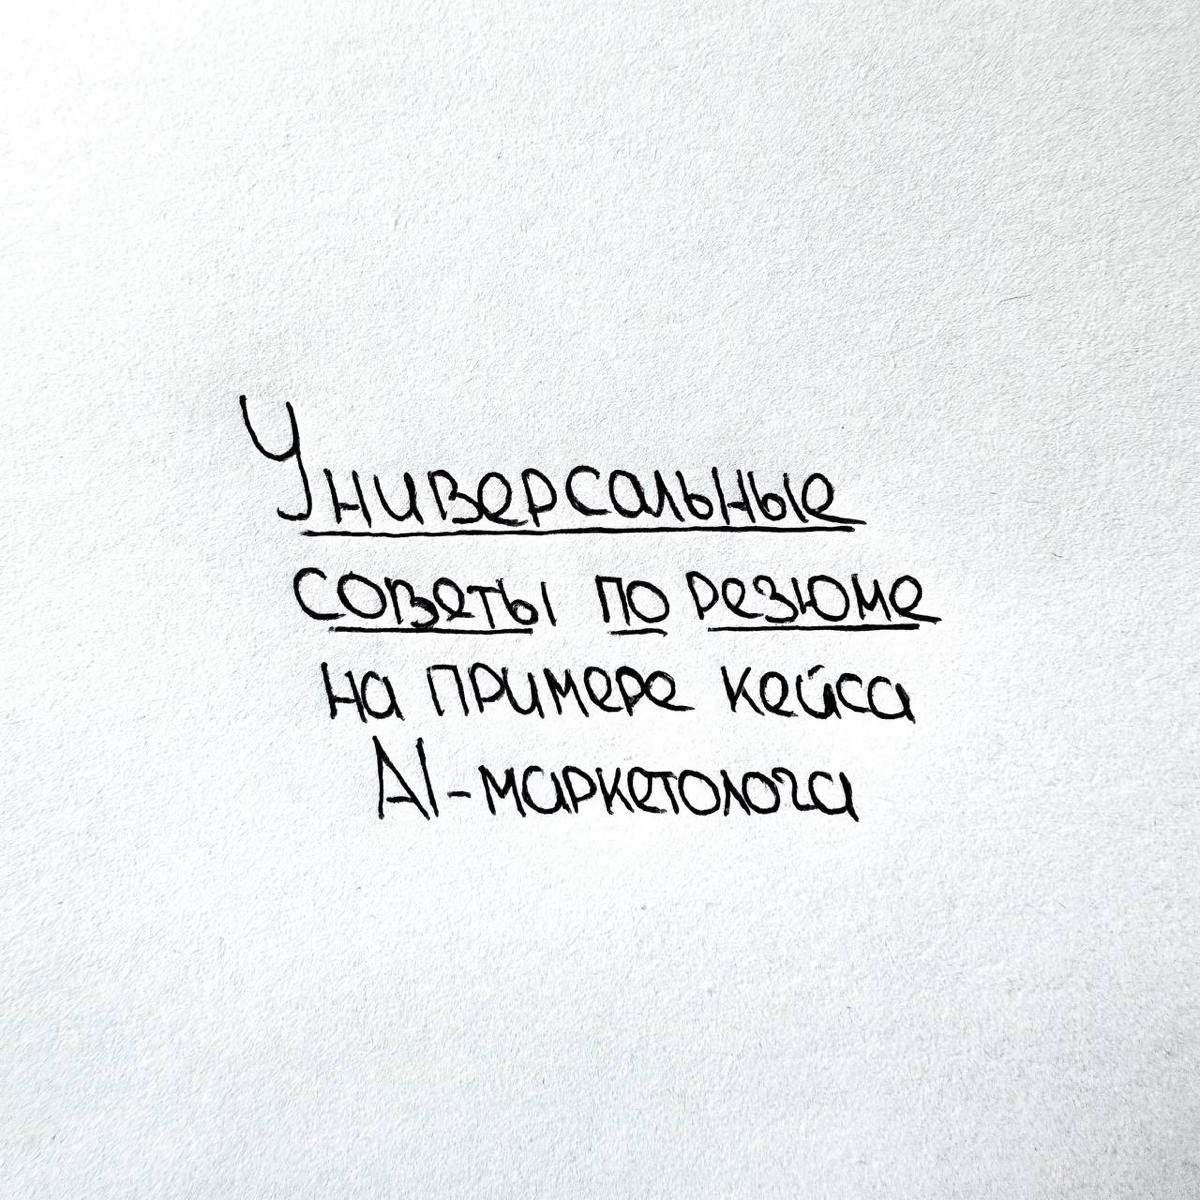 Универсальные
советы по резюме
на примере кейса
AI-маркетолога